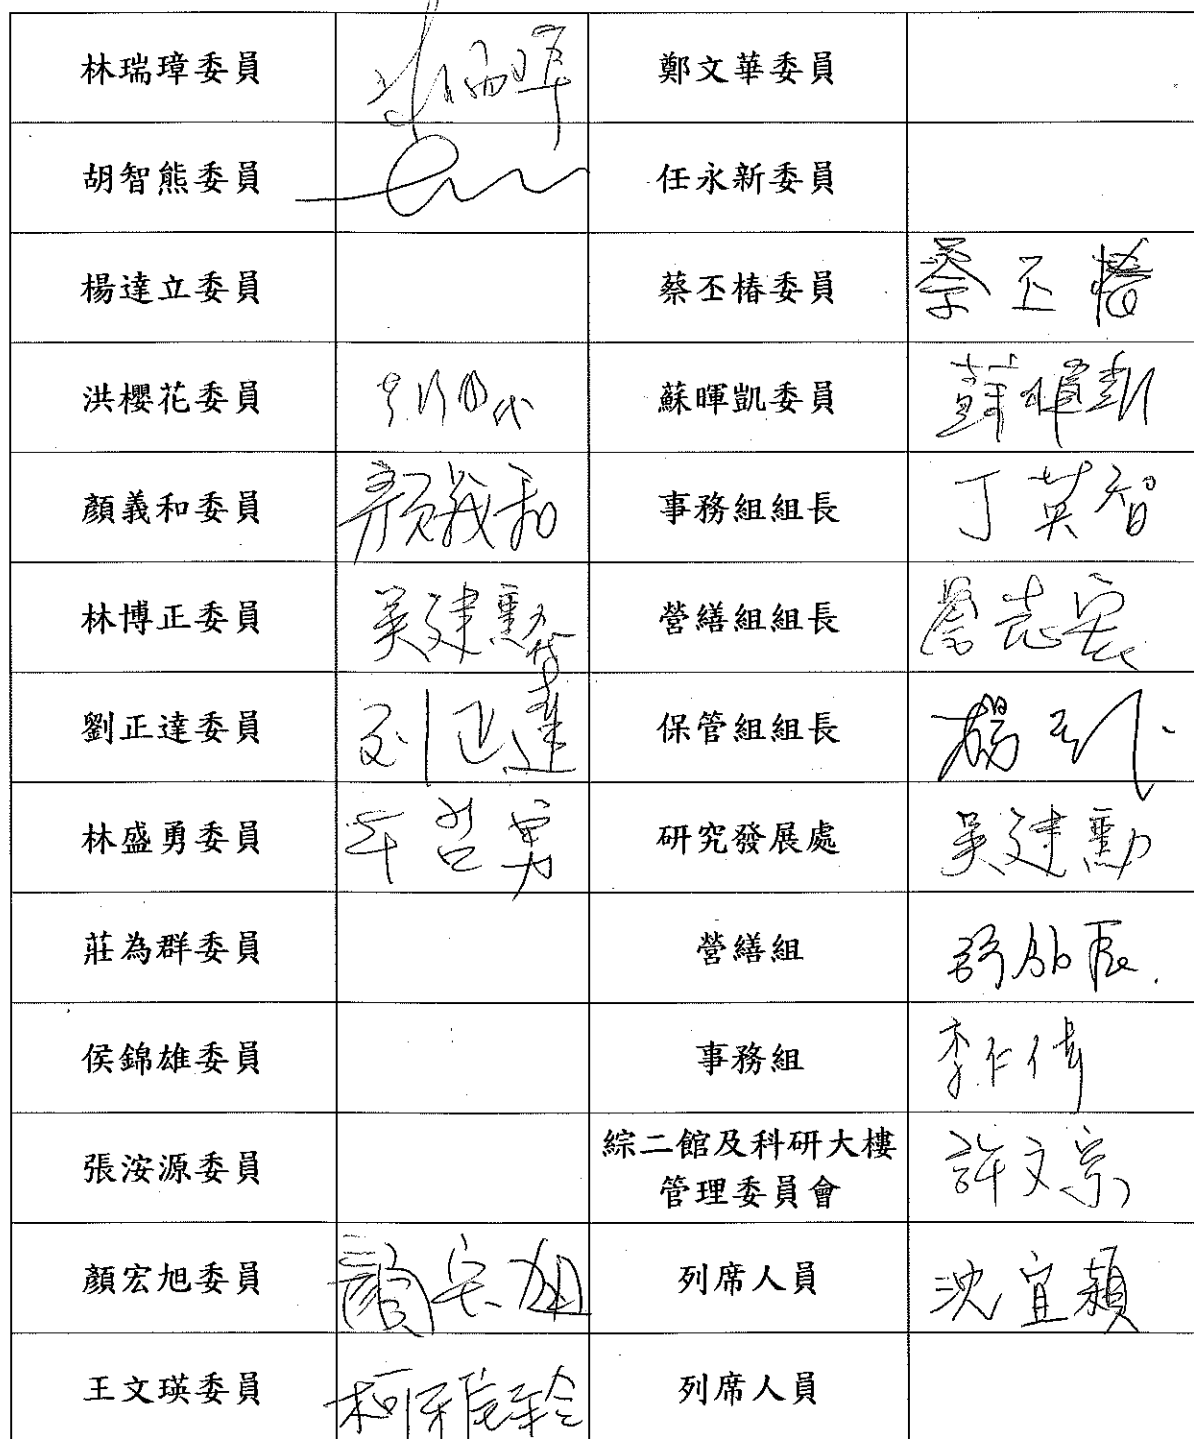 林瑞璋委員 林瑞璋 鄭文華委員
胡智熊委員 任永新委員
楊達立委員 蔡丕椿委員 蔡丕椿
洪櫻花委員 代 蘇暉凱委員 蘇暉凱
顏義和委員 顏義和 事務組組長 丁英智
林博正委員 吳建勳代 營繕組組長
劉正達委員 劉正達 保管組組長 楊
林盛勇委員 研究發展處 吳建勳
莊為群委員 營繕組
侯錦雄委員 事務組 李仁偉
張洝源委員 綜二館及科研大樓
管理委員會 許文宗
顏宏旭委員 顏宏旭 列席人員 沈宜穎
王文瑛委員 柯雅玲 列席人員